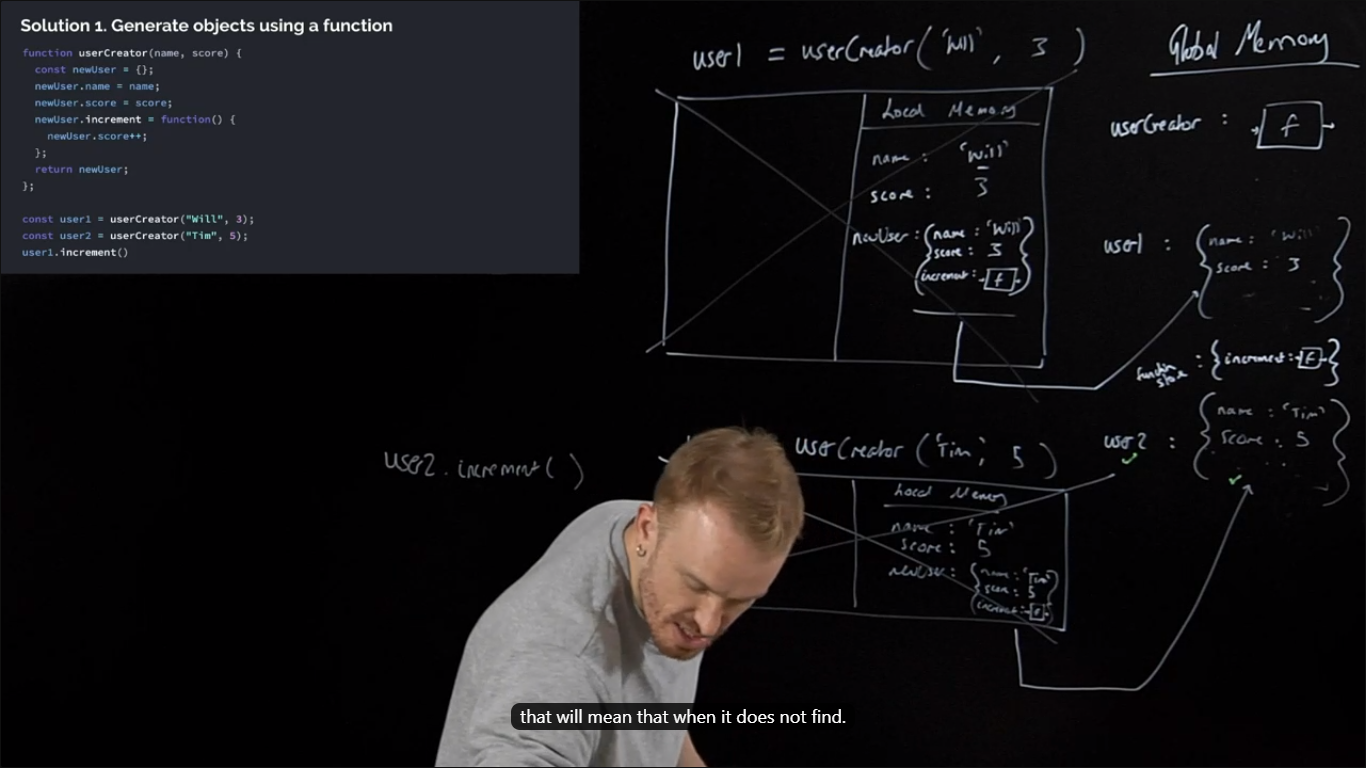 Solution 1. Generate objects using a function
function userCreator(name, score) {
const newUser = {};
newUser.name = name;
newUser.score = score;
newUser.increment = function() {
newUser.score++;
};
return newUser;
};
const user1 = userCreator("Will", 3);
const user2 = userCreator("Tim", 5);
user1.increment()
user1 = userCreator('Will', 3)
Local Memory
name : 'Will'
score : 3
newUser : { name : 'Will'
score : 3
increment : f }
Global Memory
userCreator : f
user1 : { name : 'Will'
score : 3 }
function store : { increment : f }
user2 : { name : 'Tim'
score : 5 }
user2.increment( )
userCreator ('Tim', 5)
Local Memory
name : 'Tim'
score : 5
newUser : { name : 'Tim'
score : 5
increment : f }
that will mean that when it does not find.